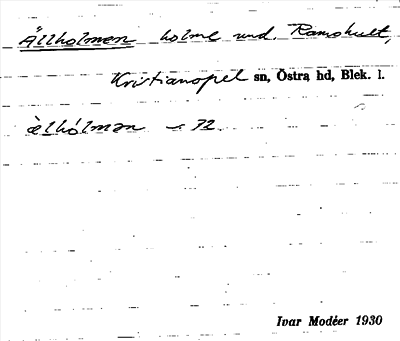 Ällholmen holme und. Ramshult,
Kristianopel sn, Östra hd, Blek. l.
ælhólmən 72
Ivar Modéer 1930